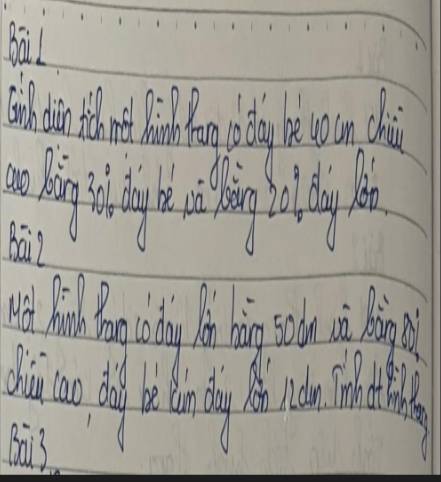 Bài 1
Tính diện tích một hình thang có đáy bé 40 cm chiều
cao bằng 30% đáy bé và bằng 20% đáy lớn.
Bài 2
Một hình thang có đáy lớn bằng 50dm và bằng 80%
chiều cao, đáy bé kém đáy lớn 12dm. Tính dt hình thang
Bài 3